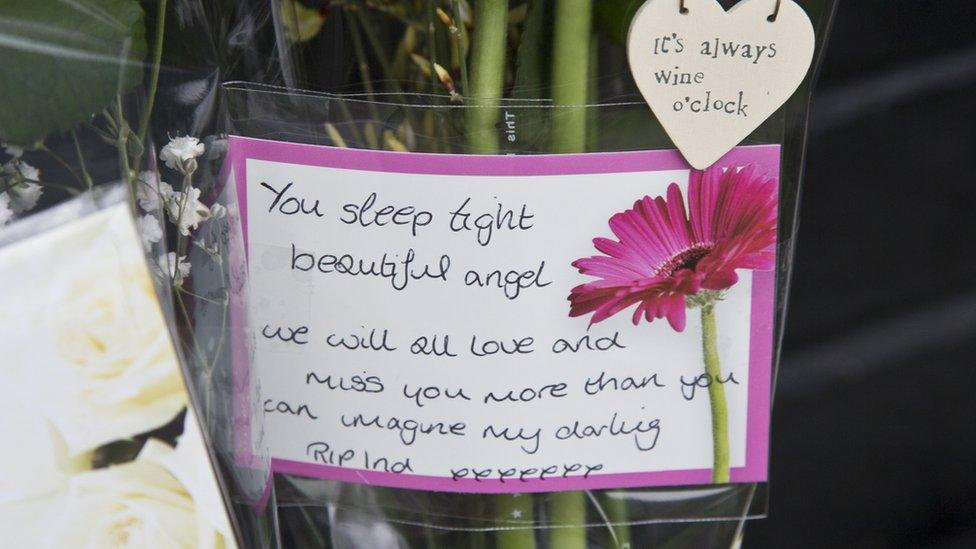 It's always
wine
o'clock
This
You sleep tight
beautiful angel
we will all love and
miss you more than you
can imagine my darling
RIP Ind xxxxxxx